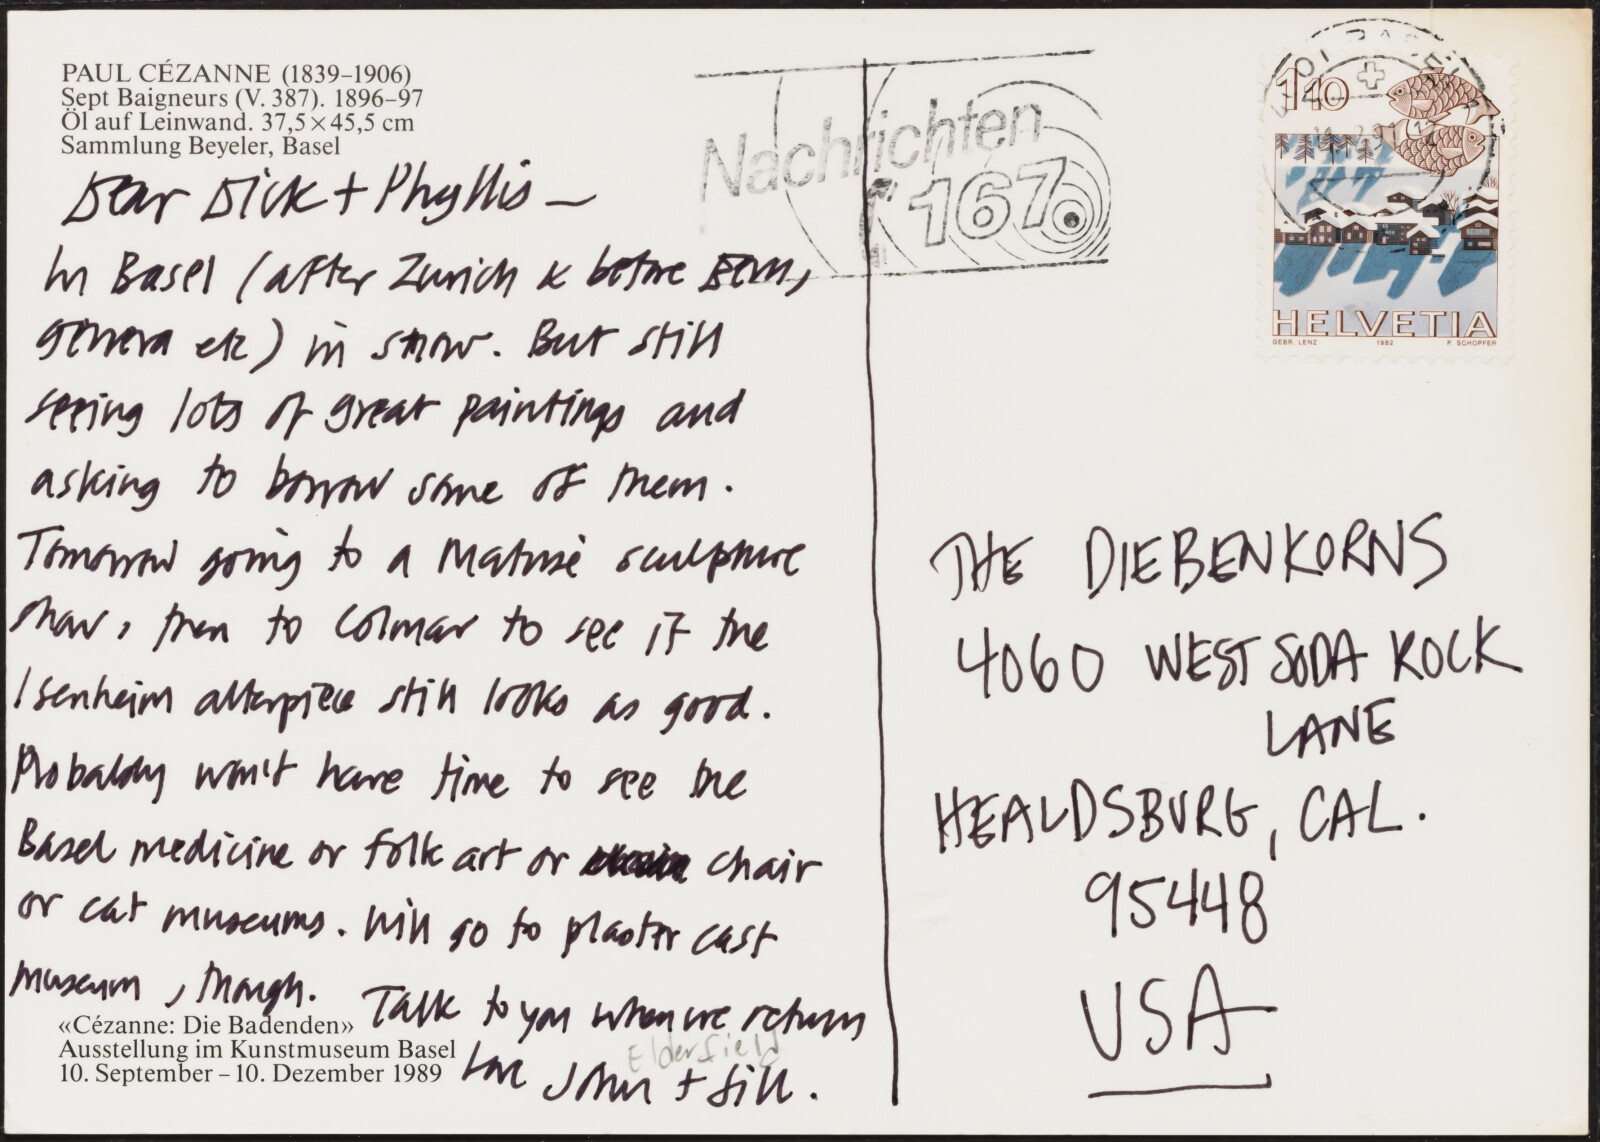 PAUL CÉZANNE (1839–1906)
Sept Baigneurs (V. 387). 1896–97
Öl auf Leinwand. 37,5 × 45,5 cm
Sammlung Beyeler, Basel
Dear Dick + Phyllis —
In Basel (after Zurich & before Bern,
Geneva etc) in snow. But still
seeing lots of great paintings and
asking to borrow some of them.
Tomorrow going to a Matisse sculpture
show, then to Colmar to see if the
Isenheim alterpiece still looks as good.
Probably won't have time to see the
Basel medicine or folk art or chair
or cat museums. Will go to plaster cast
museum, though. Talk to you when we return
«Cézanne: Die Badenden»
Ausstellung im Kunstmuseum Basel
10. September – 10. Dezember 1989
Love John + Jill.
Elderfield
Nachrichten
167
BASEL
1 40
HELVETIA
GEBR. LENZ 1982 P. SCHOPFER
THE DIEBENKORNS
4060 WEST SODA ROCK
LANE
HEALDSBURG, CAL.
95448
USA